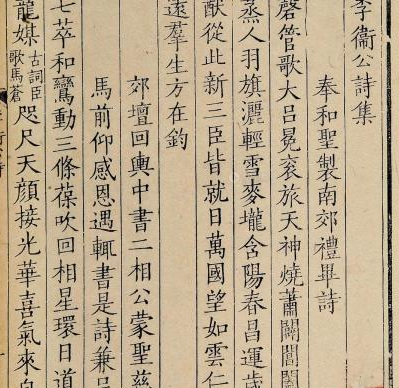 李衞公詩集
奉和聖製南郊禮畢詩
磬管歌大呂冕衮旅天神燒蕭闢閶闔
燕人羽旗灑輕雪麥壠含陽春昌運歲
猷從此新三臣皆就日萬國望如雲仁
遠羣生方在鈞
郊壇回輿中書二相公蒙聖慈
馬前仰感恩遇輒書是詩兼呂
七萃和鸞動三條葆吹回相星環日道
龍媒古詞臣歌馬蒼咫尺天顔接光華喜氣來自